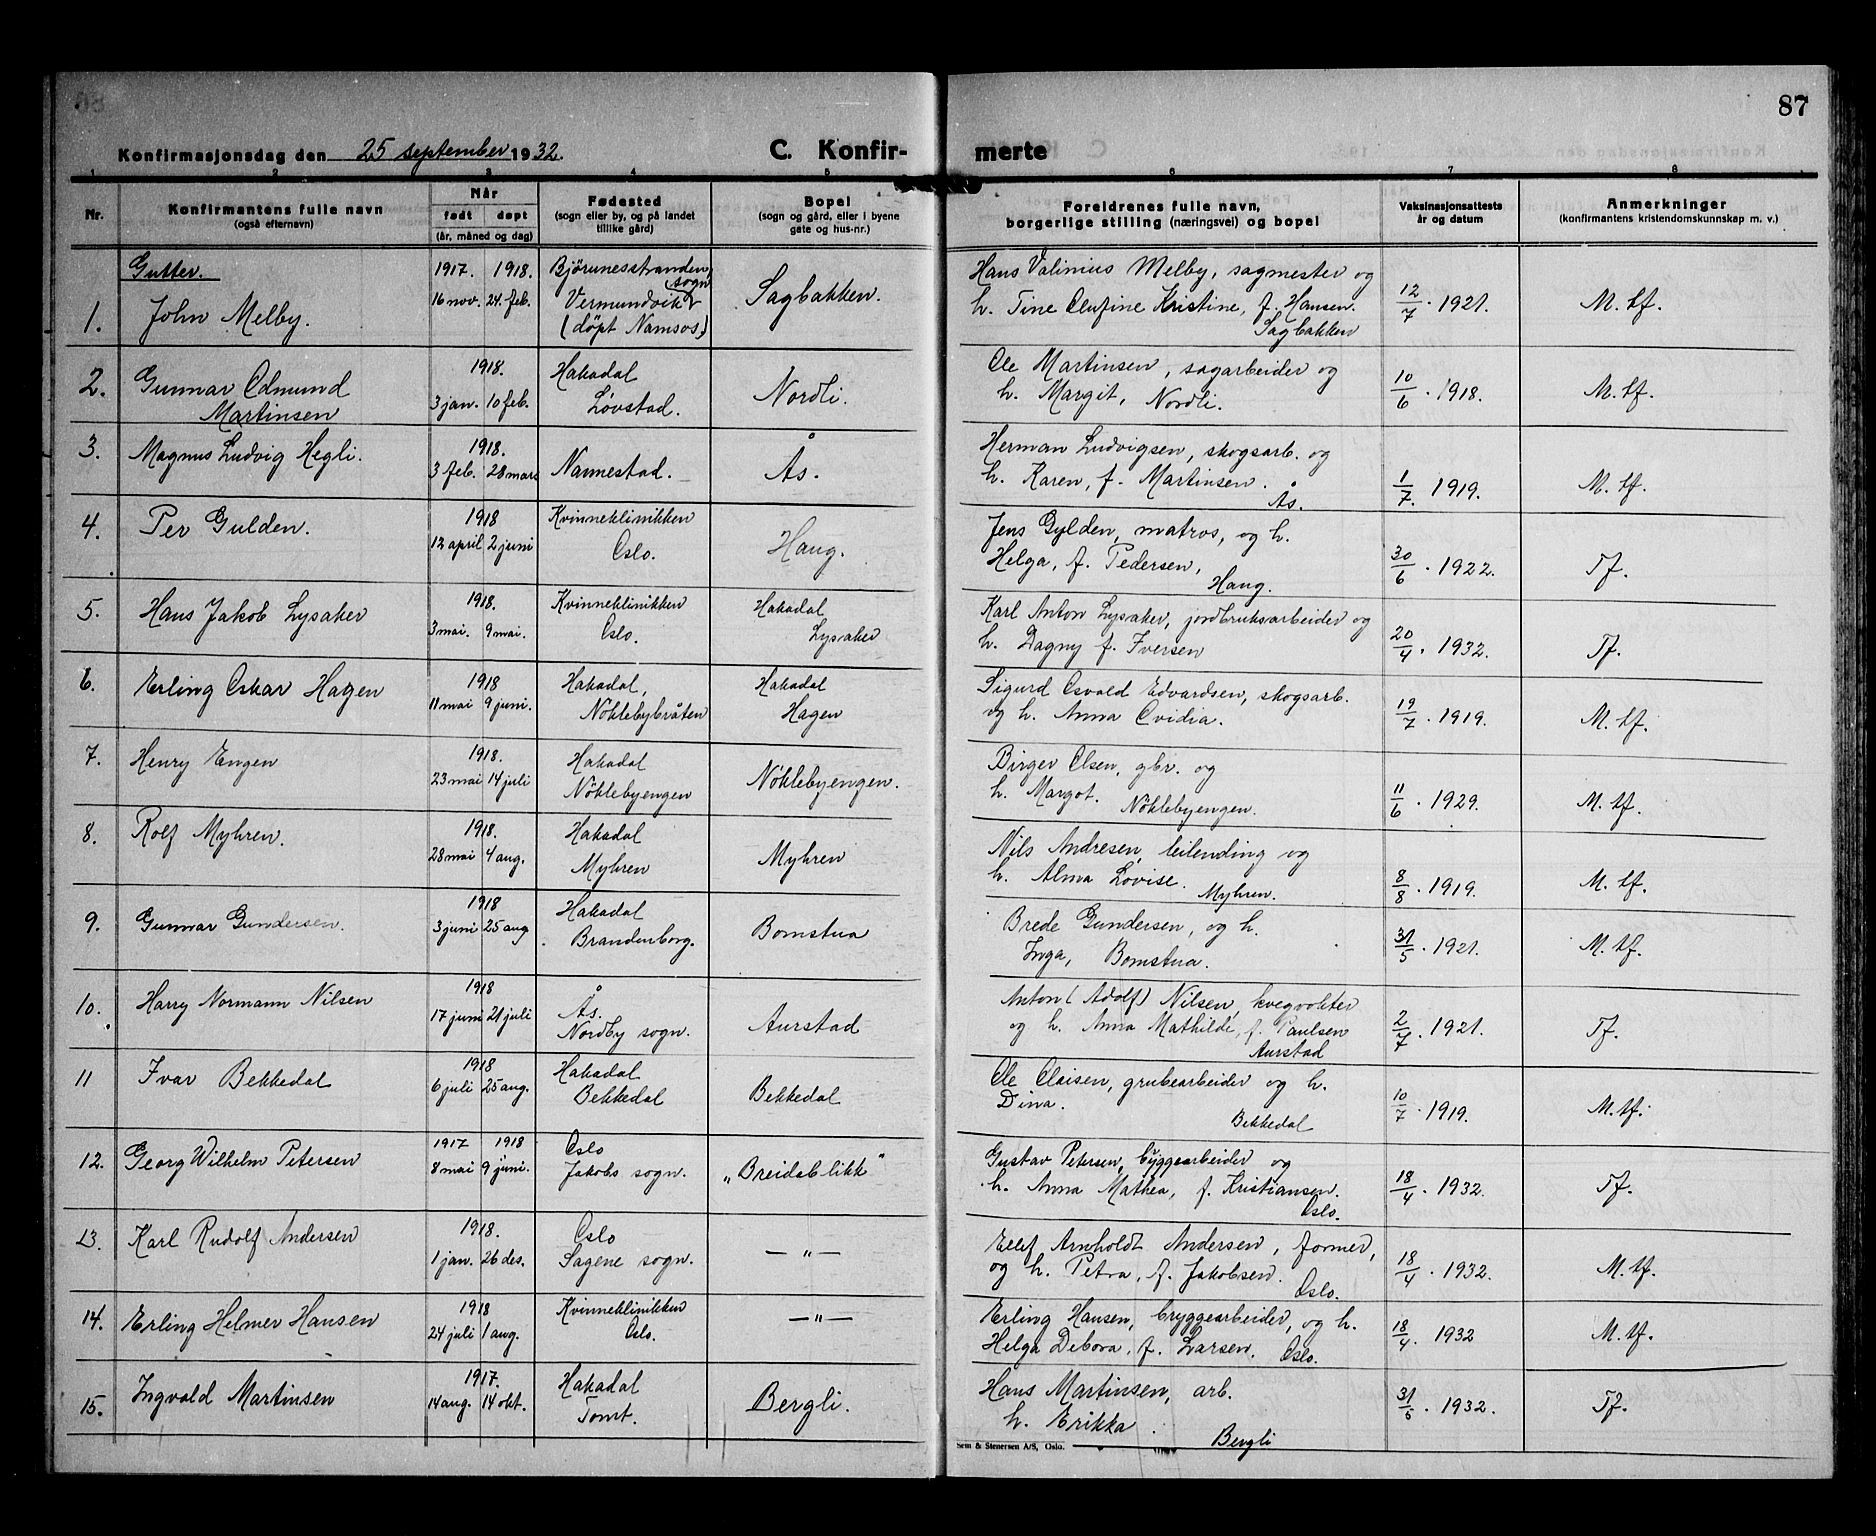 87
Konfirmasjonsdag den 25 september 1932.
C. Konfir- merte
1 2 3 4 5 6 7 8
Nr.
Konfirmantens fulle navn
(også efternavn)
Når
født døpt
(år, måned og dag)
Fødested
(sogn eller by, og på landet
tillike gård)
Bopel
(sogn og gård, eller i byene
gate og hus-nr.)
Foreldrenes fulle navn,
borgerlige stilling (næringsvei) og bopel
Vaksinasjonsattests
år og datum
Anmerkninger
(konfirmantens kristendomskunnskap m. v.)
Gutter. 1917. 1918. Bjørunesstranden sogn Hans Valinius Melby, sagmester og
1. John Melby. 16 nov. 24. feb. Vermundvik (døpt Namsos) Sagbakken. h. Tine Olufine Kristine, f. Hansen. Sagbakken 12/7. 1921. M. tf.
2. Gunnar Odmund Martinsen 1918. 3 jan. 10 feb. Hakadal Løvstad. Nordli. Ole Martinsen, sagarbeider og
h. Margit, Nordli. 10/6. 1918. M. tf.
3. Magnus Ludvig Hegli. 1918. 3 feb. 28 mars Nannestad. Ås. Herman Ludvigsen, skogsarb. og
h. Karen, f. Martinsen. Ås. 1/7. 1919. M. tf.
4. Per Gulden. 1918 12 april 2 juni Kvinneklinikken Oslo. Haug. Jens Gylden, matros, og h.
Helga, f. Pedersen, Haug. 30/6. 1922. Tf.
5. Hans Jakob Lysaker 1918. 3 mai. 9 mai. Kvinneklinikken Oslo. Hakadal Lysaker Karl Anton Lysaker, jordbruksarbeider og
h. Dagny f. Iversen 20/4. 1932. Tf.
6. Erling Oskar Hagen 1918 11 mai 9 juni. Hakadal, Nøklebybråten Hakadal Hagen Sigurd Osvald Edvardsen, skogsarb.
og h. Anna Ovidia. 19/7. 1919. M. tf.
7. Henry Engen 1918. 23 mai 14 juli Hakadal Nøklebyengen Nøklebyengen. Birger Olsen, gbr. og
h. Margot. Nøklebyengen. 11/6. 1929. M. tf.
8. Rolf Myhren. 1918. 28 mai 4 aug. Hakadal Myhren Myhren Nils Andresen, leilending og
h. Alma Lovise. Myhren. 8/8. 1919. M. tf.
9. Gunnar Gundersen. 1918 3 juni 25 aug Hakadal Brandenborg. Bomstua Brede Gundersen, og h.
Inga, Bomstua. 31/5. 1921. M. tf.
10. Harry Normann Nilsen 1918 17 juni 21 juli Ås. Nordby sogn. Aurstad Anton (Adolf) Nilsen, kvegvokter
og h. Anna Mathilde, f. Paulsen Aurstad 2/7. 1921. Tf.
11 Ivar Bekkedal 1918 6 juli 25 aug. Hakadal Bekkedal Bekkedal Ole Olaisen, grubearbeider og h.
Dina. Bekkedal 10/7. 1919. M. tf.
12. Georg Wilhelm Petersen 1917 1918 8 mai 9 juni. Oslo Jakobs sogn. „Breidablikk" Gustav Petersen, byggearbeider og
h. Anna Mathea, f. Kristiansen. Oslo. 18/4. 1932. Tf.
13. Karl Rudolf Andersen 1918. 1 jan. 26 des. Oslo Sagene sogn. — " — Ellef Arnholdt Andersen, former,
og h. Petra, f. Jakobsen. Oslo. 18/4. 1932. M. tf.
14. Erling Helmer Hansen 1918 24 juli 1 aug. Kvinneklinikken Oslo. — " — Erling Hansen, bryggearbeider, og h.
Helga Debora, f. Larsen. Oslo. 18/4. 1932 M. tf.
15. Ingvald Martinsen 1917. 14 aug. 14 okt. Hakadal Tomt. Bergli. Hans Martinsen, arb.
h. Erikka. Bergli 31/5. 1932. Tf.
Sem & Stenersen A/S, Oslo.